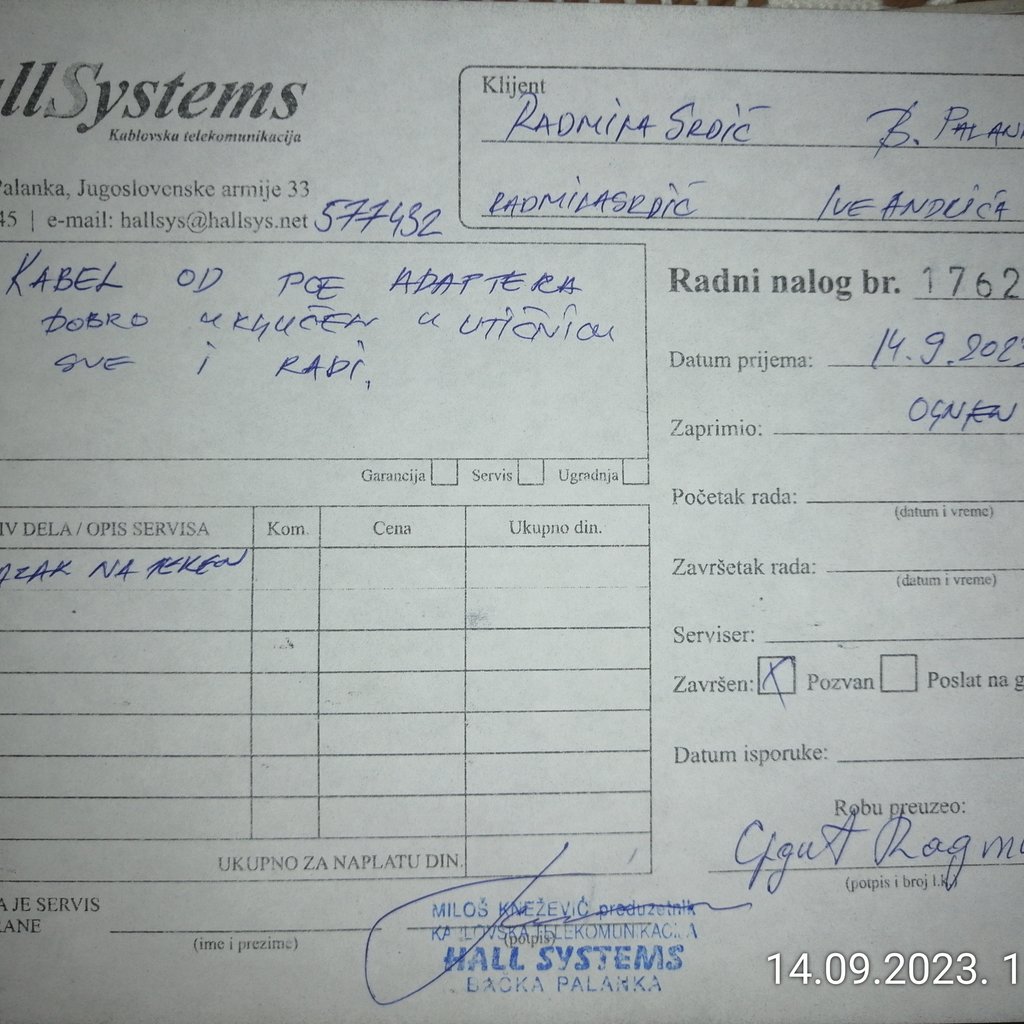 allSystems
Kablovska telekomunikacija
Palanka, Jugoslovenske armije 33
45 | e-mail: hallsys@hallsys.net 577432
Klijent
RADMILA SRDIĆ B. PALAN
RADMILASRDIĆ IVE ANDRIĆA
KABEL OD POE ADAPTERA
DOBRO UKLJUČEN U UTIČNICU
SVE I RADI.
Garancija Servis Ugradnja
Radni nalog br. 1762
Datum prijema: 14.9.2023
Zaprimio: OGNJEN
Početak rada:
(datum i vreme)
Završetak rada:
(datum i vreme)
Serviser:
Završen: X Pozvan Poslat na g
Datum isporuke:
Robu preuzeo:
(potpis i broj l.k.)
IV DELA / OPIS SERVISA Kom. Cena Ukupno din.
AZAK NA TEREN
UKUPNO ZA NAPLATU DIN.
A JE SERVIS
RANE
(ime i prezime)
(potpis)
MILOŠ KNEŽEVIĆ preduzetnik
KABLOVSKA TELEKOMUNIKACIJA
HALL SYSTEMS
BAČKA PALANKA
14.09.2023. 1